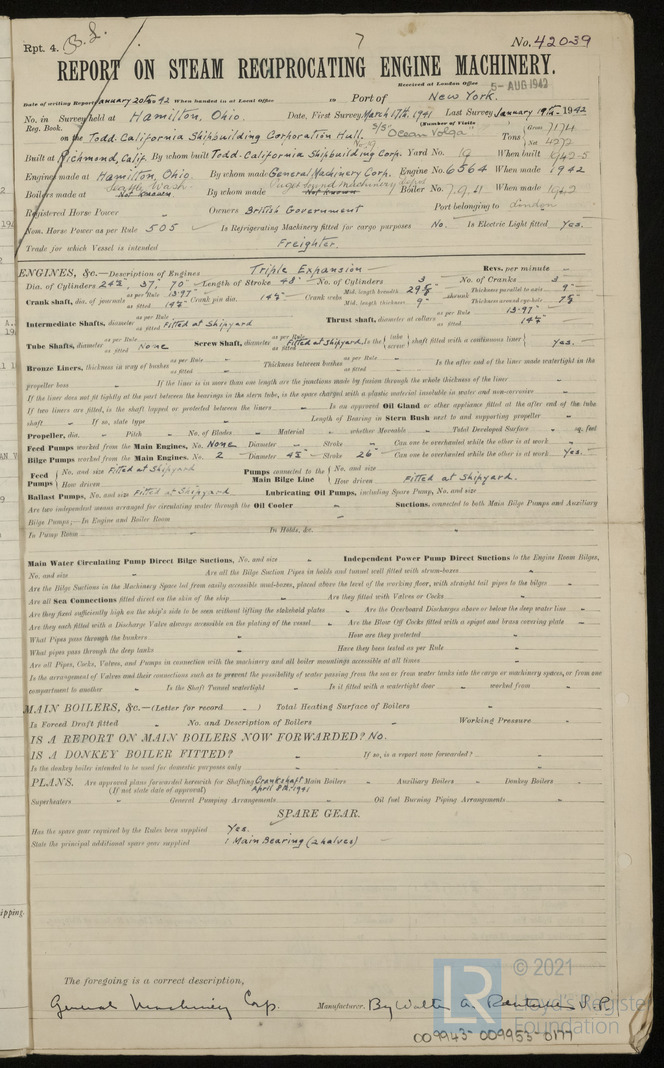 Rpt. 4.
7
No. 42039
REPORT ON STEAM RECIPROCATING ENGINE MACHINERY.
Received at London Office 5-AUG 1942
Date of writing Report January 20th 1942 When handed in at Local Office 19 Port of New York.
No. in Survey held at Hamilton, Ohio. Date, First Survey March 17th, 1941 Last Survey January 19th 1942
Reg. Book. (Number of Visits
on the Todd-California Shipbuilding Corporation Hull. No. 9 S/S "Ocean Volga" Tons Gross 7174 Net 4272
Built at Richmond, Calif. By whom built Todd-California Shipbuilding Corp. Yard No. When built 1942-5
Engines made at Hamilton, Ohio. By whom made General Machinery Corp. Engine No. 6564 when made 1942
Boilers made at Seattle Wash. Not Known By whom made Puget Sound Machinery Depot Not Known Boiler No. when made 1942
Registered Horse Power Owners British Government Port belonging to London
Nom. Horse Power as per Rule 505 Is Refrigerating Machinery fitted for cargo purposes No. Is Electric Light fitted Yes.
Trade for which Vessel is intended Freighter.
ENGINES, &c.—Description of Engines Triple Expansion Revs. per minute
Dia. of Cylinders 24½, 37, 70" Length of Stroke 48" No. of Cylinders 3 No. of Cranks 3
Crank shaft, dia. of journals as per Rule 13.97" as fitted 14¼" Crank pin dia. 14¼" Crank webs Mid. length breadth Mid. length thickness 9" shrunk Thickness parallel to axis 9" Thickness around eye-hole
Intermediate Shafts, diameter as per Rule as fitted Fitted at Shipyard Thrust shaft, diameter at collars as per Rule 13.97" as fitted 14¼"
Tube Shafts, diameter as per Rule as fitted None Screw Shaft, diameter as per Rule as fitted Fitted at Shipyard Is the { tube screw } shaft fitted with a continuous liner { Yes.
Bronze Liners, thickness in way of bushes as per Rule as fitted Thickness between bushes as per Rule as fitted Is the after end of the liner made watertight in the
propeller boss If the liner is in more than one length are the junctions made by fusion through the whole thickness of the liner
If the liner does not fit tightly at the part between the bearings in the stern tube, is the space charged with a plastic material insoluble in water and non-corrosive
If two liners are fitted, is the shaft lapped or protected between the liners Is an approved Oil Gland or other appliance fitted at the after end of the tube
shaft If so, state type Length of Bearing in Stern Bush next to and supporting propeller
Propeller, dia. Pitch No. of Blades Material whether Moveable Total Developed Surface sq. feet
Feed Pumps worked from the Main Engines, No. None Diameter Stroke Can one be overhauled while the other is at work
Bilge Pumps worked from the Main Engines, No. 2 Diameter 4½" Stroke 26" Can one be overhauled while the other is at work Yes.
Feed Pumps { No. and size Fitted at Shipyard How driven Pumps connected to the Main Bilge Line { No. and size How driven Fitted at Shipyard.
Ballast Pumps, No. and size Fitted at Shipyard Lubricating Oil Pumps, including Spare Pump, No. and size
Are two independent means arranged for circulating water through the Oil Cooler Suctions, connected to both Main Bilge Pumps and Auxiliary
Bilge Pumps;—In Engine and Boiler Room
In Pump Room In Holds, &c.
Main Water Circulating Pump Direct Bilge Suctions, No. and size Independent Power Pump Direct Suctions to the Engine Room Bilges,
No. and size Are all the Bilge Suction Pipes in holds and tunnel well fitted with strum-boxes
Are the Bilge Suctions in the Machinery Space led from easily accessible mud-boxes, placed above the level of the working floor, with straight tail pipes to the bilges
Are all Sea Connections fitted direct on the skin of the ship Are they fitted with Valves or Cocks
Are they fixed sufficiently high on the ship's side to be seen without lifting the stokehold plates Are the Overboard Discharges above or below the deep water line
Are they each fitted with a Discharge Valve always accessible on the plating of the vessel Are the Blow Off Cocks fitted with a spigot and brass covering plate
What Pipes pass through the bunkers How are they protected
What pipes pass through the deep tanks Have they been tested as per Rule
Are all Pipes, Cocks, Valves, and Pumps in connection with the machinery and all boiler mountings accessible at all times
Is the arrangement of Valves and their connections such as to prevent the possibility of water passing from the sea or from water tanks into the cargo or machinery spaces, or from one
compartment to another Is the Shaft Tunnel watertight Is it fitted with a watertight door worked from
MAIN BOILERS, &c.—(Letter for record ) Total Heating Surface of Boilers
Is Forced Draft fitted No. and Description of Boilers Working Pressure
IS A REPORT ON MAIN BOILERS NOW FORWARDED? No.
IS A DONKEY BOILER FITTED? If so, is a report now forwarded?
Is the donkey boiler intended to be used for domestic purposes only
PLANS. Are approved plans forwarded herewith for Shafting Crankshaft April 8th 1941 Main Boilers Auxiliary Boilers Donkey Boilers
(If not state date of approval)
Superheaters General Pumping Arrangements Oil fuel Burning Piping Arrangements
SPARE GEAR.
Has the spare gear required by the Rules been supplied Yes.
State the principal additional spare gear supplied 1 Main Bearing (2 halves)
The foregoing is a correct description,
General Machinery Corp. Manufacturer. By Walter A. V.P.
© 2021
Lloyd's Register
Foundation
009943-009953-0177